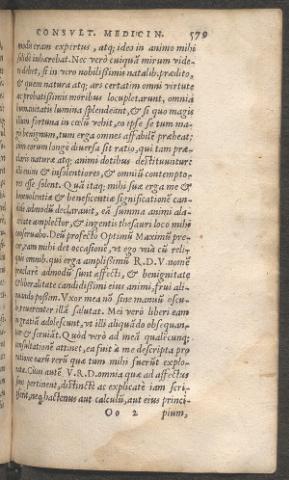 CONSVLT. MEDICIN. 579
modò eram expertus, atq; ideo in animo mihi
inhærebat. Nec verò cuiquã mirum vide-
debet, si in vero nobilissimis natalib. prædito,
& quem natura atq; ars certatim omni virtute
ac probatissimis moribus locupletarunt, omnia
humanitatis lumina splendeant, & si quo magis
illum fortuna in cœlũ vehit, eo ipse se tum ma-
benignum, tum erga omnes affabilẽ præbeat;
cum eorum longè diversa sit ratio, qui tam præ-
claris naturæ atq; animi dotibus destituuntur:
enim & insolentiores, & omniũ contempto-
res esse solent. Quã itaq; mihi suæ erga me &
benevolentiæ & beneficentiæ significationẽ can-
admodũ declaravit, eã summa animi ala-
amplector, & ingentis thesauri loco mihi
conservabo. Deũ profecto Optimũ Maximũ pre-
cor, eam mihi det occasionẽ, vt ego vnà cũ reli-
quis omnib. qui erga amplissimũ R.D.V. nomẽ
præclarè admodũ sunt affecti, & benignitate
& liberalitate candidissimi eius animi, frui ali-
quando possim. Vxor mea nõ sine manuũ oscu-
reverenter illã salutat. Mei verò liberi eam
gratiã adolescunt, vt illi aliquãdo obsequan-
& serviãt. Quòd verò ad meã qualemcunq;
consultationẽ attinet, ea fuit à me descripta pro
ratione earũ rerũ quæ tum mihi fuerũt explo-
ratæ. Cùm autẽ V.R.D. omnia quæ ad affectus
pertinent, distinctè ac explicatè iam scri-
neq; hactenus aut calculũ, aut eius princi-
Oo 2 pium,